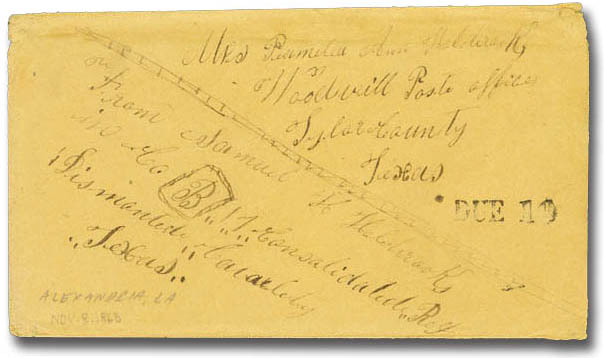 Mrs Permelia Ann Holbrook
Woodvill Post office
Tylor County
Texas
From Samuel H Holbrook
in Co B 17 Consalidated Reg
Dismanteled Cavarley
Texas
DUE 10
ALEXANDRIA, LA
NOV. 8, 1863